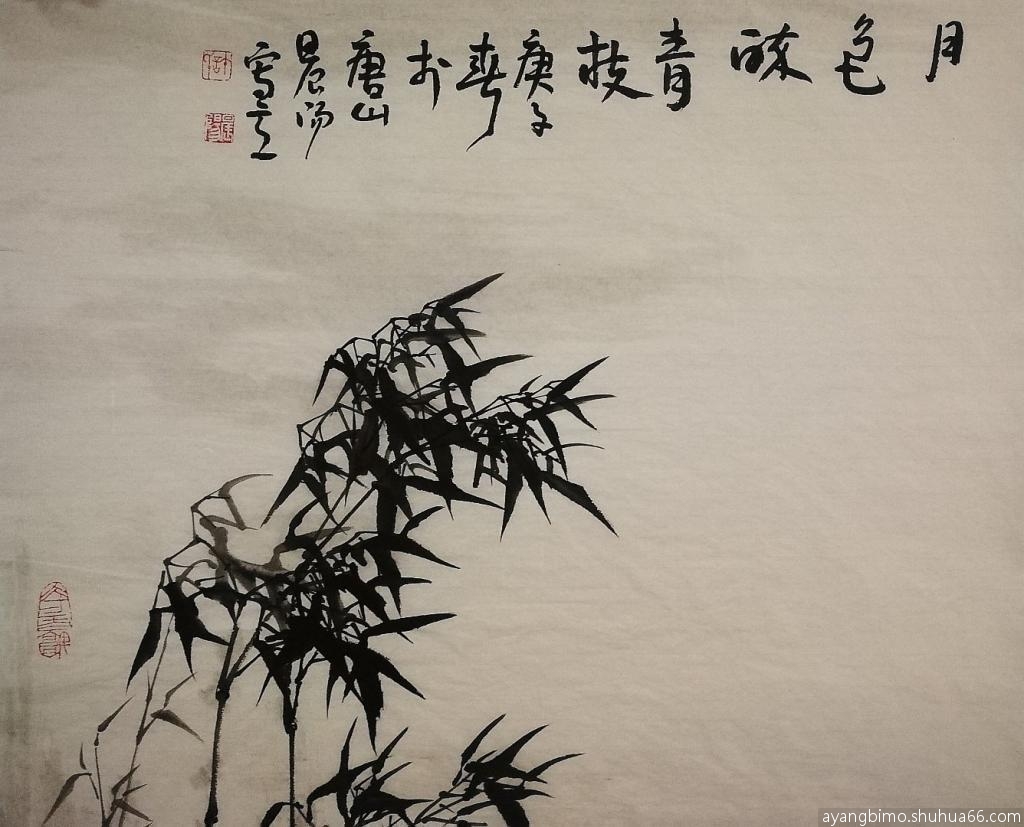 月色疎青枝
庚子
春
於
唐山
晨阳
ayangbimo.shuhua66.com